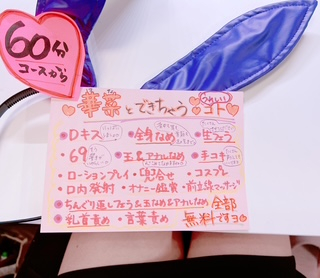 60分
コースから
華菜とできちゃう
コト
Dキス
全身なめ
生フェラ
69
玉&アナルなめ
手コキ
ローションプレイ
兜合せ
コスプレ
口内発射
オナニー鑑賞
前立腺マッサージ
ちんぐり返しフェラ&玉なめ&アナルなめ
全部
乳首責め
言葉責め
無料ですヨ